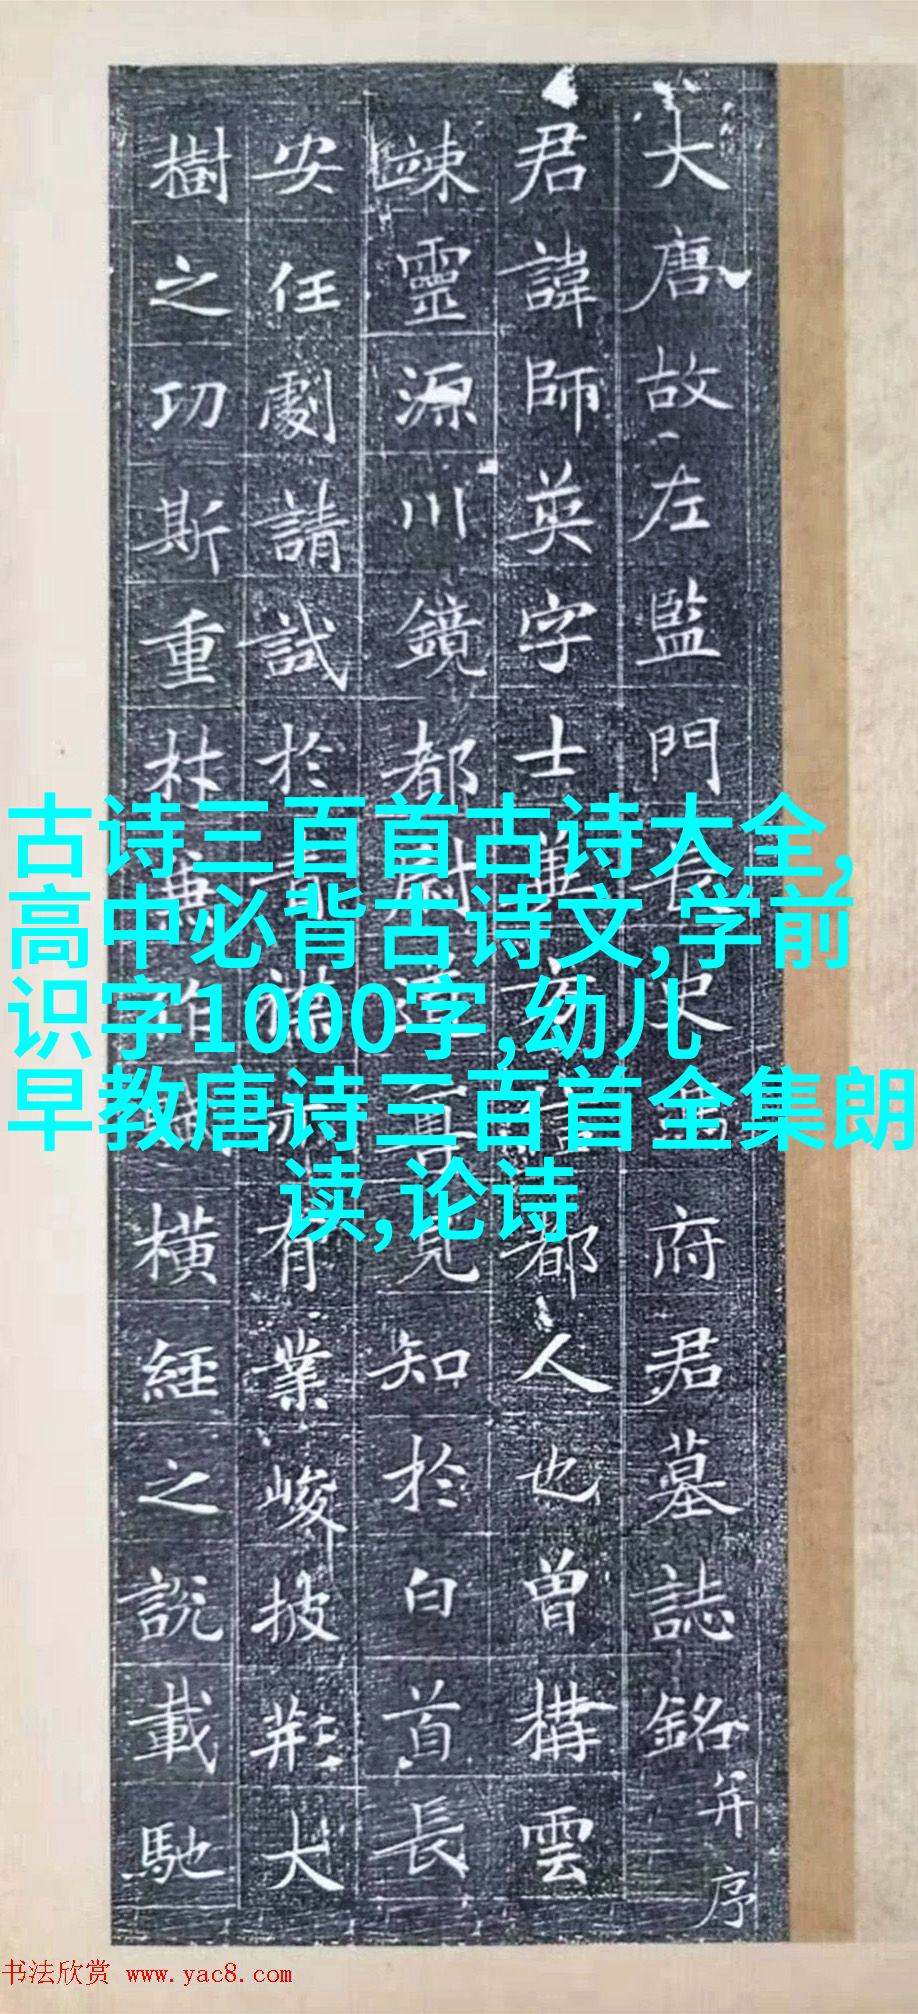 大唐故左監門長史府君墓誌銘并序
君諱師英字士都人也曾構雲
竦靈源川鏡都尉見知於白首長
安任劇請試於有業峻披荊大
樹之功斯重杜橫經之説載馳
古诗三百首古诗大全,
高中必背古诗文,学前
识字1000字,幼儿
早教唐诗三百首全集朗
读,论诗
书法欣赏 www.yac8.com